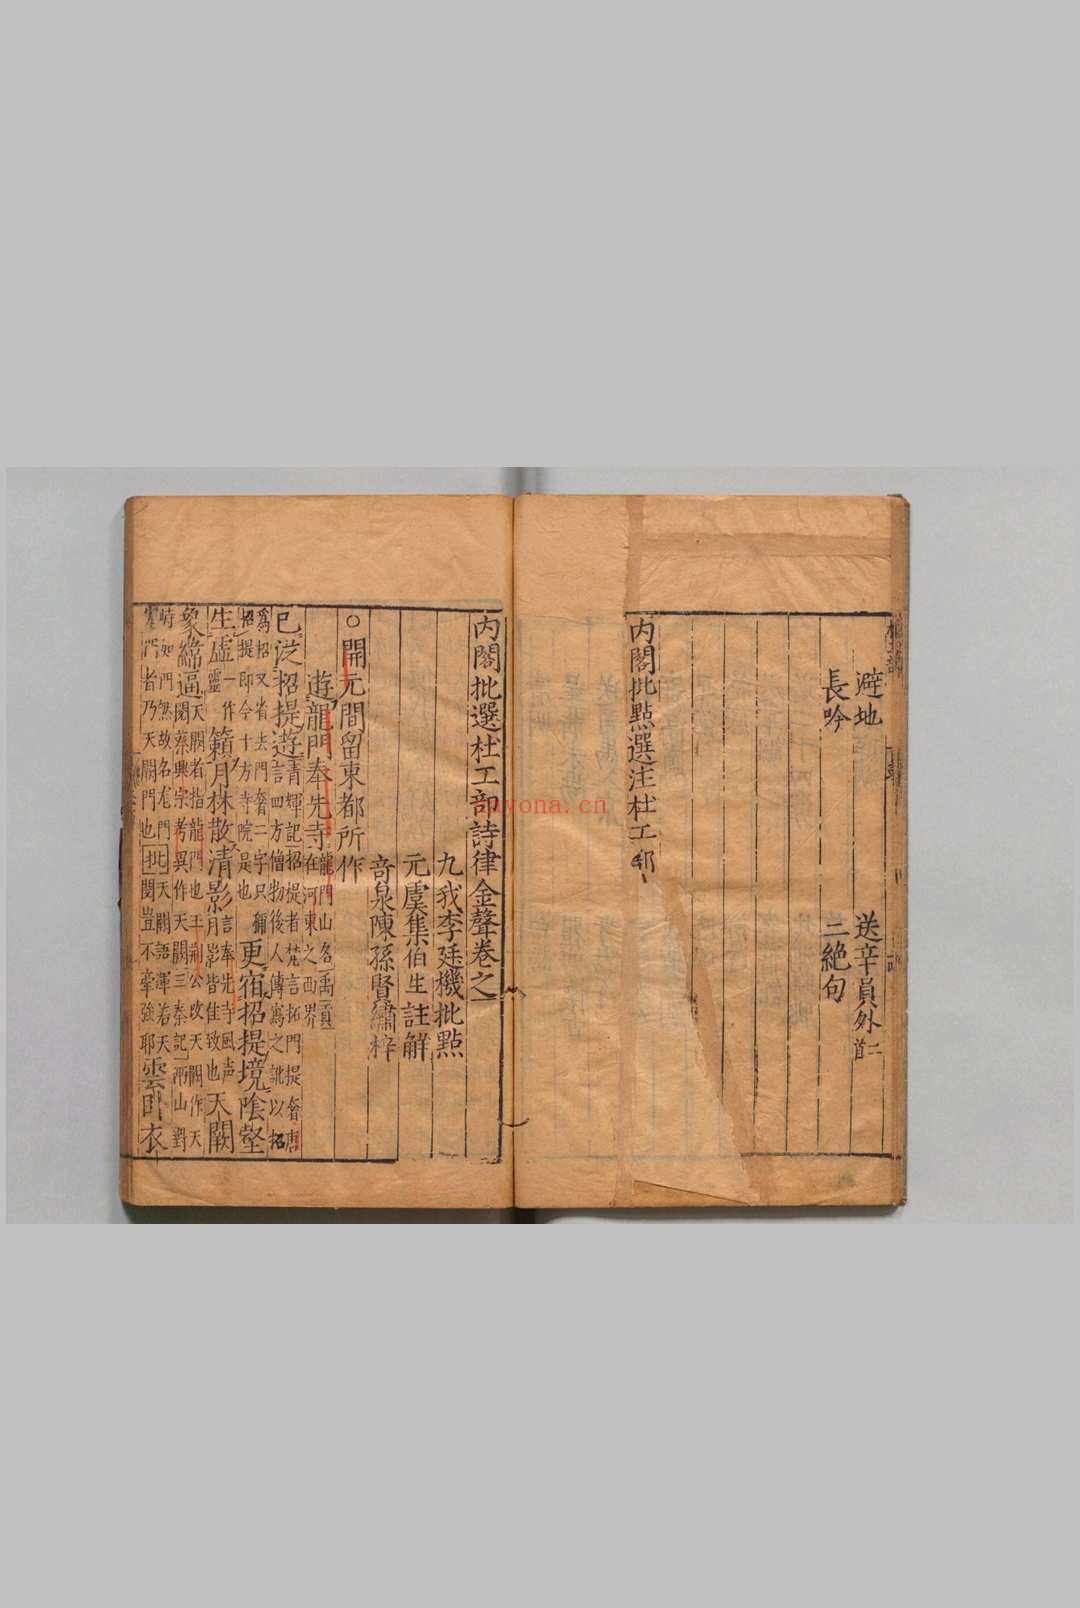 避地
送辛員外二首
長吟
三絶句
內閣批點選注杜工部
內閣批選杜工部詩律金聲卷之一
九我李廷機批點
元虞集伯生註解
奇泉陳孫賢繡梓
○開元間留東都所作
遊龍門奉先寺 龍門山名禹貢在河東之西界
已從招提遊 言四方僧物後人傳寫之訛以招爲招又省去門奢二字只稱招提即今十方寺院是也 更宿招提境陰壑
生虛 靈一作 籟月林散清影 言奉先寺風声月影皆佳致也 天闕
象緯逼 天闕者指龍門也王荊公改天闕作天閱蔡興宗考異作天闚三秦記 山對峙如門無故名龙門
者乃天闕門也 批 天闕語渾若天閱豈不牽強耶 雲卧衣
anyona.cn